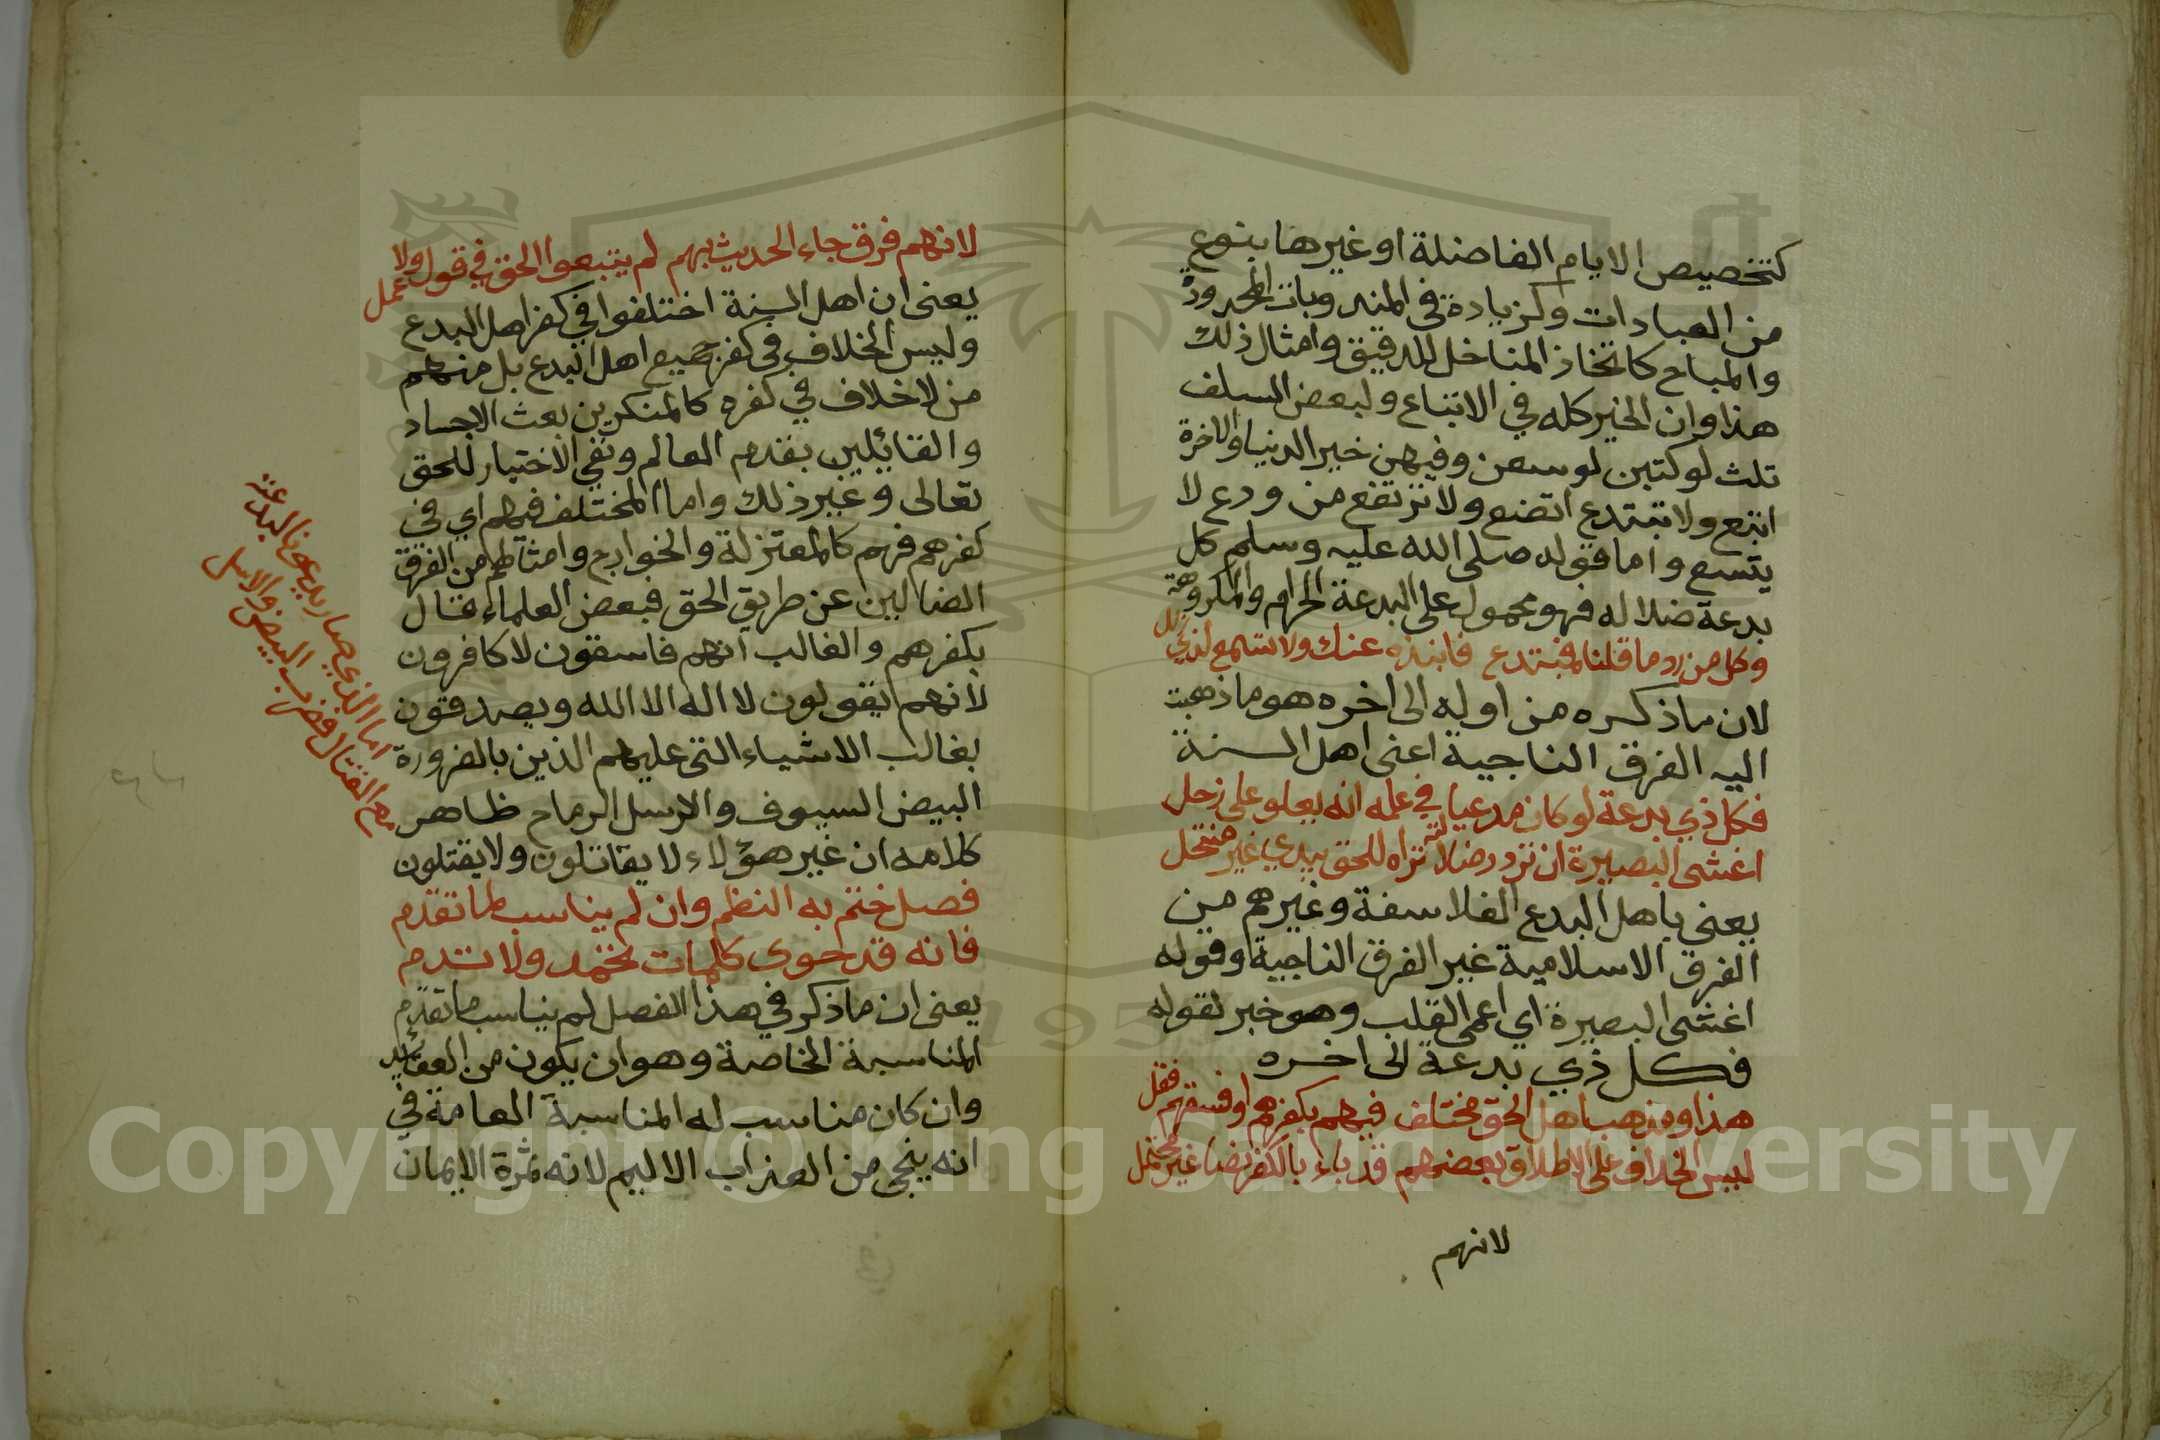 كتخصيص الايام الفاضلة او غيرها بنوع
من العبادات وكزيادة في المندوبات المحدودة
والمباح كاتخاذ المناخل للدقيق وامثال ذلك
هذا وان الخير كله في الاتباع ولبعض السلف
ثلث لو كتبن لوسعن وفيهن خير الدنيا والاخرة
اتبع ولا تبتدع اتضع ولا ترتفع من ودع لا
يتسع واما قوله صلى الله عليه وسلم كل
بدعة ضلاله فهو محمول على البدعة الحرام والمكروهة
وكل من رد ما قلنا فمبتدع فانبذه عنك ولا تسمع لذي زلل
لان ما ذكره من اوله الى اخره هو ما ذهبت
اليه الفرق الناجية اعني اهل السنة
فكل ذي بدعة لو كان مدعيا في علمه انه يعلو على زحل
اغشى البصيرة ان ترد ضلالته تراه للحق يبدي غير منتحل
يعني باهل البدع الفلاسفة وغيرهم من
الفرق الاسلامية غير الفرق الناجية وقوله
اغشى البصيرة اي اعمى القلب وهو خبر لقوله
فكل ذي بدعة الى اخره
هذا ومذهب اهل الحق مختلف فيهم بكفرهم او فسقهم فقل
ليس الخلاف على الاطلاق بعضهم قد باء بالكفر نصا غير محتمل
لانهم
لانهم فرق جاء الحديث بهم لم يتبعوا الحق في قول ولا عمل
يعني ان اهل السنة اختلفوا في كفر اهل البدع
وليس الخلاف في كفر جميع اهل البدع بل منهم
من لا خلاف في كفره كالمنكرين بعث الاجساد
والقائلين بقدم العالم ونفي الاختيار للحق
تعالى وغير ذلك واما المختلف فيهم اي في
كفرهم فهم كالمعتزلة والخوارج وامثالهم من الفرق
الضالين عن طريق الحق فبعض العلماء قال
بكفرهم والغالب انهم فاسقون لا كافرون
لانهم يقولون لا اله الا الله ويصدقون
بغالب الاشياء التي عليهم الذين بالضرورة
البيض السيوف والاسل الرماح ظاهر
كلامه ان غير هؤلاء لا يقاتلون ولا يقتلون
فصل ختم به النظم وان لم يناسب لما تقدم
فانه قد حوى كلمات تحمد ولا تذم
يعني ان ما ذكر في هذا الفصل لم يناسب ما تقدم
المناسبة الخاصة وهو ان يكون من العقائد
وان كان مناسب له المناسبة العامة في
انه ينجي من العذاب الاليم لانه ثمرة الايمان
اما الذي صار يدعي بالبدعة
القتال فضرب البيض والاسل
Copyright © King Saud University
1957